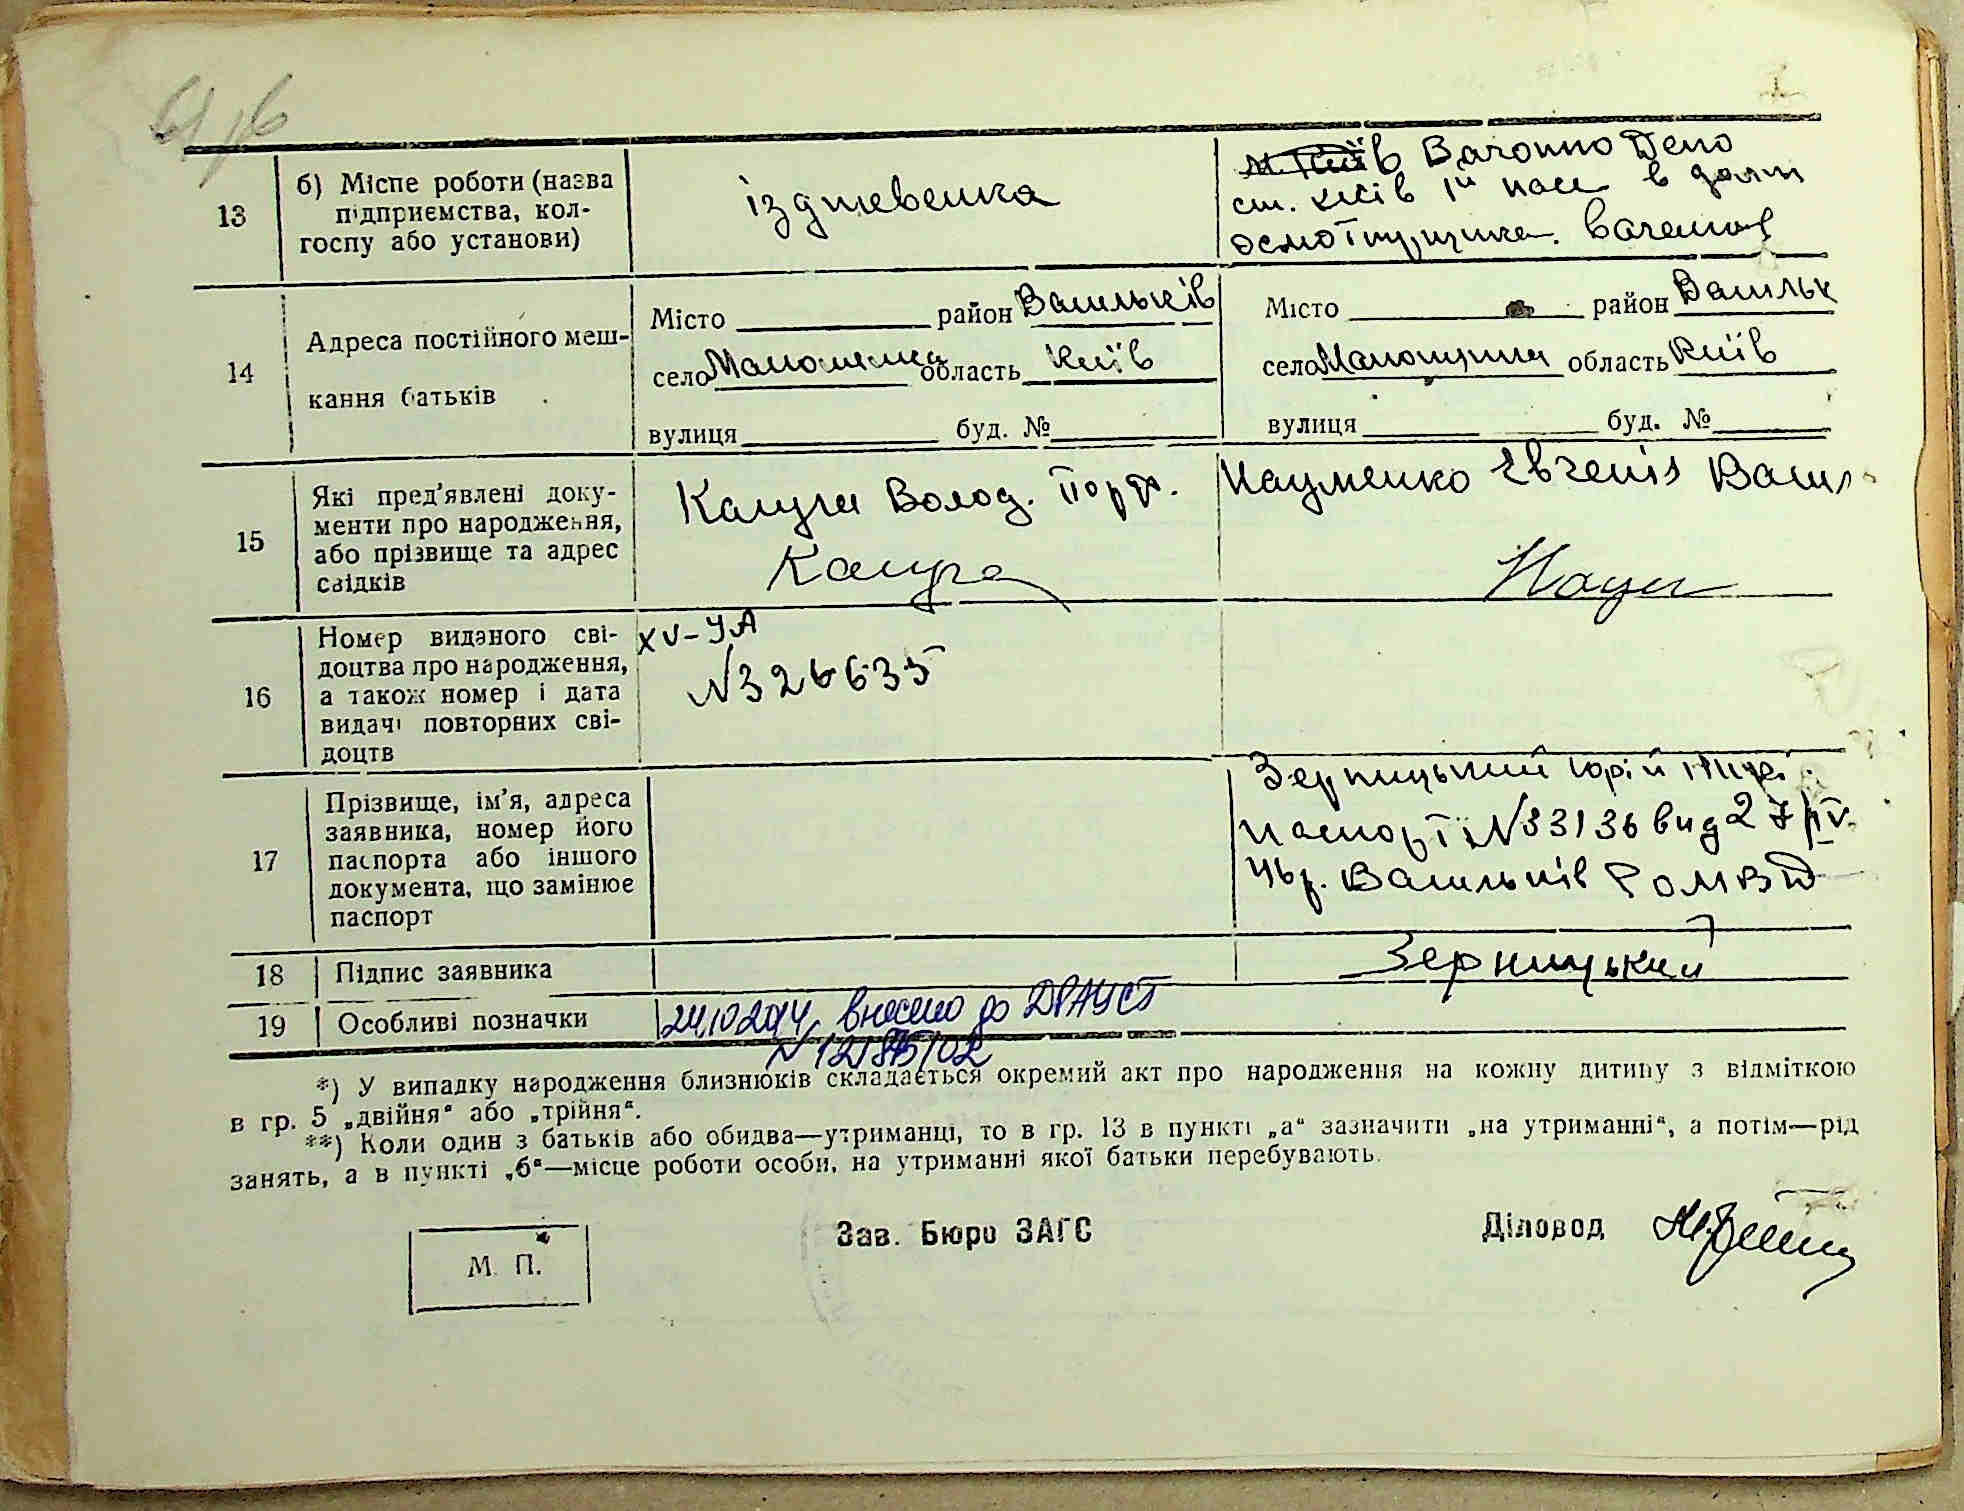 13
б) Місце роботи (назва
підприємства, кол-
госпу або установи)
іздтевенка
Вагонно Депо
ст. Київ 1й пасс в долж
осмотрщика. вагонов
14
Адреса постійного меш-
кання батьків
Місто район Васильків
село область Київ
вулиця буд. №
Місто район Васильк
село область Київ
вулиця буд. №
15
Які пред'явлені доку-
менти про народження,
або прізвище та адрес
свідків
Калуга Волод. Порф.
Калуга
Науменко Євгенія Васил
Наум
16
Номер виданого сві-
доцтва про народження,
а також номер і дата
видачі повторних сві-
доцтв
XV-УА
№326635
17
Прізвище, ім'я, адреса
заявника, номер його
паспорта або іншого
документа, що замінює
паспорт
Зерницький Юрій
паспорт №33136 вид 27/IV.
46р. Васильків РОМВД
18
Підпис заявника
Зерницький
19
Особливі позначки
24.10.2014 внесено до ДРАЦСГ
*) У випадку народження близнюків складається окремий акт про народження на кожну дитину з відміткою
в гр. 5 „двійня“ або „трійня“.
**) Коли один з батьків або обидва—утриманці, то в гр. 13 в пункті „а“ зазначити „на утриманні“, а потім—рід
занять, а в пункті „б“—місце роботи особи, на утриманні якої батьки перебувають.
М. П.
Зав. Бюро ЗАГС
Діловод